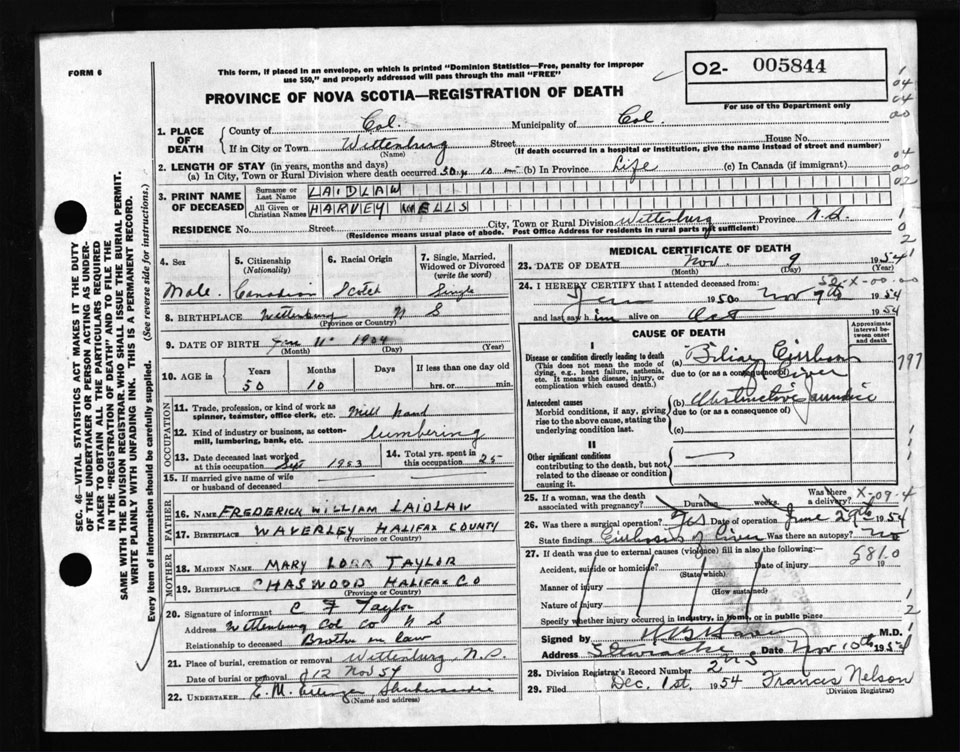 FORM 6
This form, if placed in an envelope, on which is printed "Dominion Statistics—Free, penalty for improper
use $50," and properly addressed will pass through the mail "FREE"
O2- 005844
For use of the Department only
PROVINCE OF NOVA SCOTIA—REGISTRATION OF DEATH
SEC. 46—VITAL STATISTICS ACT MAKES IT THE DUTY
OF THE UNDERTAKER OR PERSON ACTING AS UNDER-
TAKER TO OBTAIN ALL THE PARTICULARS REQUIRED
IN THE "REGISTRATION OF DEATH" AND TO FILE THE
SAME WITH THE DIVISION REGISTRAR WHO SHALL ISSUE THE BURIAL PERMIT.
WRITE PLAINLY WITH UNFADING INK. THIS IS A PERMANENT RECORD.
Every item of information should be carefully supplied. (See reverse side for instructions.)
1. PLACE OF DEATH { County of Col. Municipality of Col.
If in City or Town Wittenburg Street House No.
(Name) (If death occurred in a hospital or institution, give the name instead of street and number)
2. LENGTH OF STAY (in years, months and days)
(a) In City, Town or Rural Division where death occurred 50 y 10 m (b) In Province Life (c) In Canada (if immigrant)
3. PRINT NAME OF DECEASED { Surname or Last Name LAIDLAW
All Given or Christian Names HARVEY WELLS
RESIDENCE No. Street City, Town or Rural Division Wittenburg Province N.S.
(Residence means usual place of abode. Post Office Address for residents in rural parts not sufficient)
4. Sex Male
5. Citizenship (Nationality) Canadian
6. Racial Origin Scotch
7. Single, Married, Widowed or Divorced (write the word) Single
8. BIRTHPLACE Wittenburg N S
(Province or Country)
9. DATE OF BIRTH Jan 11 1904
(Month) (Day) (Year)
10. AGE Years 50 Months 10 Days If less than one day hrs. or min.
OCCUPATION
11. Trade, profession, or kind of work as spinner, teamster, office clerk, etc. Mill hand
12. Kind of industry or business, as cotton-mill, lumbering, bank, etc. lumbering
13. Date deceased last worked at this occupation Sept 1953
14. Total yrs. spent in this occupation 25
15. If married give name of wife or husband of deceased
FATHER
16. NAME FREDERICK WILLIAM LAIDLAW
17. BIRTHPLACE WAVERLEY HALIFAX COUNTY
(Province or Country)
MOTHER
18. MAIDEN NAME MARY LORA TAYLOR
19. BIRTHPLACE CHASWOOD HALIFAX CO
(Province or Country)
20. Signature of informant C F Taylor
Address Wittenburg Col Co N S
Relationship to deceased Brother in law
21. Place of burial, cremation or removal Wittenburg, N.S.
Date of burial or removal 12 Nov 54
22. UNDERTAKER E. M. Shubenacadie
(Name and address)
MEDICAL CERTIFICATE OF DEATH
23. DATE OF DEATH Nov. 9 1954
(Month) (Day) (Year)
24. I HEREBY CERTIFY that I attended deceased from
1950 Nov 9th 1954
and last saw him alive on Oct 1954
CAUSE OF DEATH
Approximate interval between onset and death
I
Disease or condition directly leading to death
(This does not mean the mode of dying, e.g., heart failure, asthenia, etc. It means the disease, injury, or complication which caused death.)
(a) Biliary Cirrhosis
due to (or as a consequence of) of Liver
Antecedent causes
Morbid conditions, if any, giving rise to the above cause, stating the underlying condition last.
(b) Obstructive Jaundice
due to (or as a consequence of)
(c)
II
Other significant conditions
contributing to the death, but not related to the disease or condition causing it.
25. If a woman, was the death associated with pregnancy? Duration weeks. Was there a delivery? X-09-4
26. Was there a surgical operation? Yes Date of operation June 29th 1954
State findings Cirrhosis of Liver Was there an autopsy? no
27. If death was due to external causes (violence) fill in also the following:—
5810
Accident, suicide or homicide? Date of injury 19
(State which)
Manner of injury
(How sustained)
Nature of injury
Specify whether injury occurred in industry, in home, or in public place
Signed by M.D.
Address Stewiacke Date Nov 10th 1954
28. Division Registrar's Record Number
29. Filed Dec. 1st. 1954 Francis Nelson
(Division Registrar)